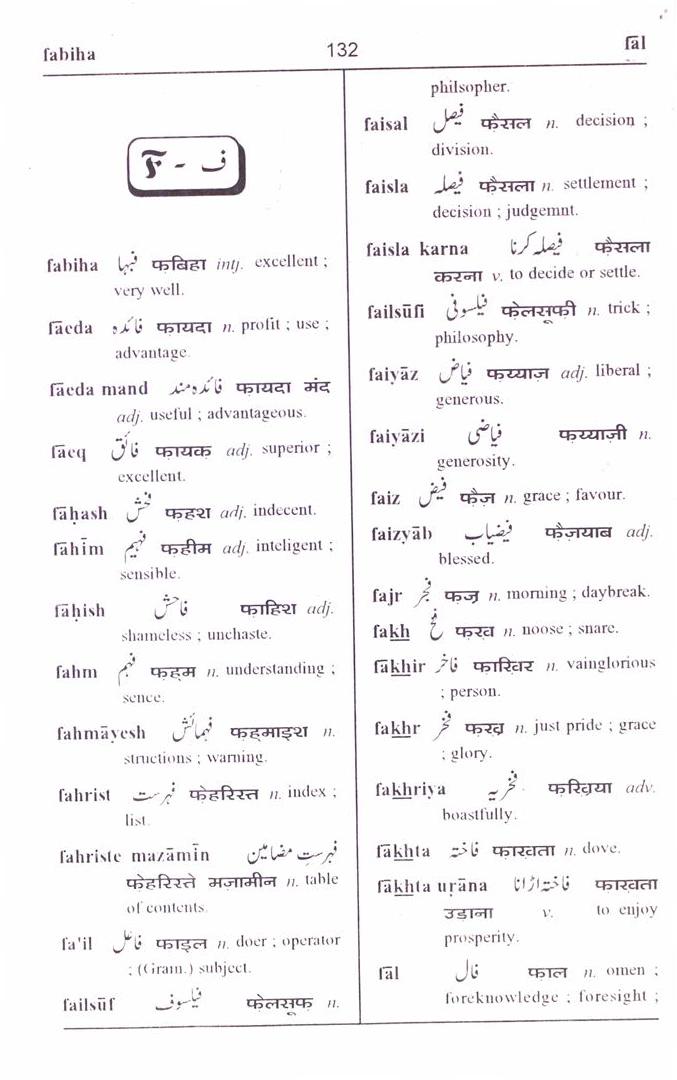 fabiha 132 fāl
F - ف
fabiha فبہا फबिहा intj. excellent ;
very well.
fāeda فائدہ फायदा n. profit ; use ;
advantage.
fāeda mand فائدہ مند फायदा मंद
adj. useful ; advantageous.
fāeq فائق फायक adj. superior ;
excellent.
fāḥash فحش फहश adj. indecent.
fāhīm فہیم फहीम adj. inteligent ;
sensible.
fāḥish فاحش फाहिश adj.
shameless ; unchaste.
fahm فہم फह्म n. understanding ;
sence.
fahmāyesh فہمائش फह्माइश n.
structions ; warning.
fahrist فہرست फेहरिस्त n. index ;
list.
fahriste mazāmīn فہرستِ مضامین
फेहरिस्ते मज़ामीन n. table
of contents.
fa'il فاعل फाइल n. doer ; operator
; (Gram.) subject.
failsūf فیلسوف फेलसूफ़ n.
philsopher.
faisal فیصل फैसल n. decision ;
division.
faisla فیصلہ फैसला n. settlement ;
decision ; judgemnt.
faisla karna فیصلہ کرنا फैसला
करना v. to decide or settle.
failsūfi فیلسوفی फेलसूफ़ी n. trick ;
philosophy.
faiyāz فیاض फय्याज़ adj. liberal ;
generous.
faiyāzi فیاضی फय्याज़ी n.
generosity.
faiz فیض फैज़ n. grace ; favour.
faizyāb فیضیاب फैज़याब adj.
blessed.
fajr فجر फज्र n. morning ; daybreak.
fakh فخ फख n. noose ; snare.
fākhir فاخر फाखिर n. vainglorious
; person.
fakhr فخر फख्र n. just pride ; grace
; glory.
fakhriya فخریہ फख्रिया adv.
boastfully.
fākhta فاختہ फाखता n. dove.
fākhta uṛāna فاختہ اڑانا फाखता
उड़ाना v. to enjoy
prosperity.
fāl فال फाल n. omen ;
foreknowledge ; foresight ;